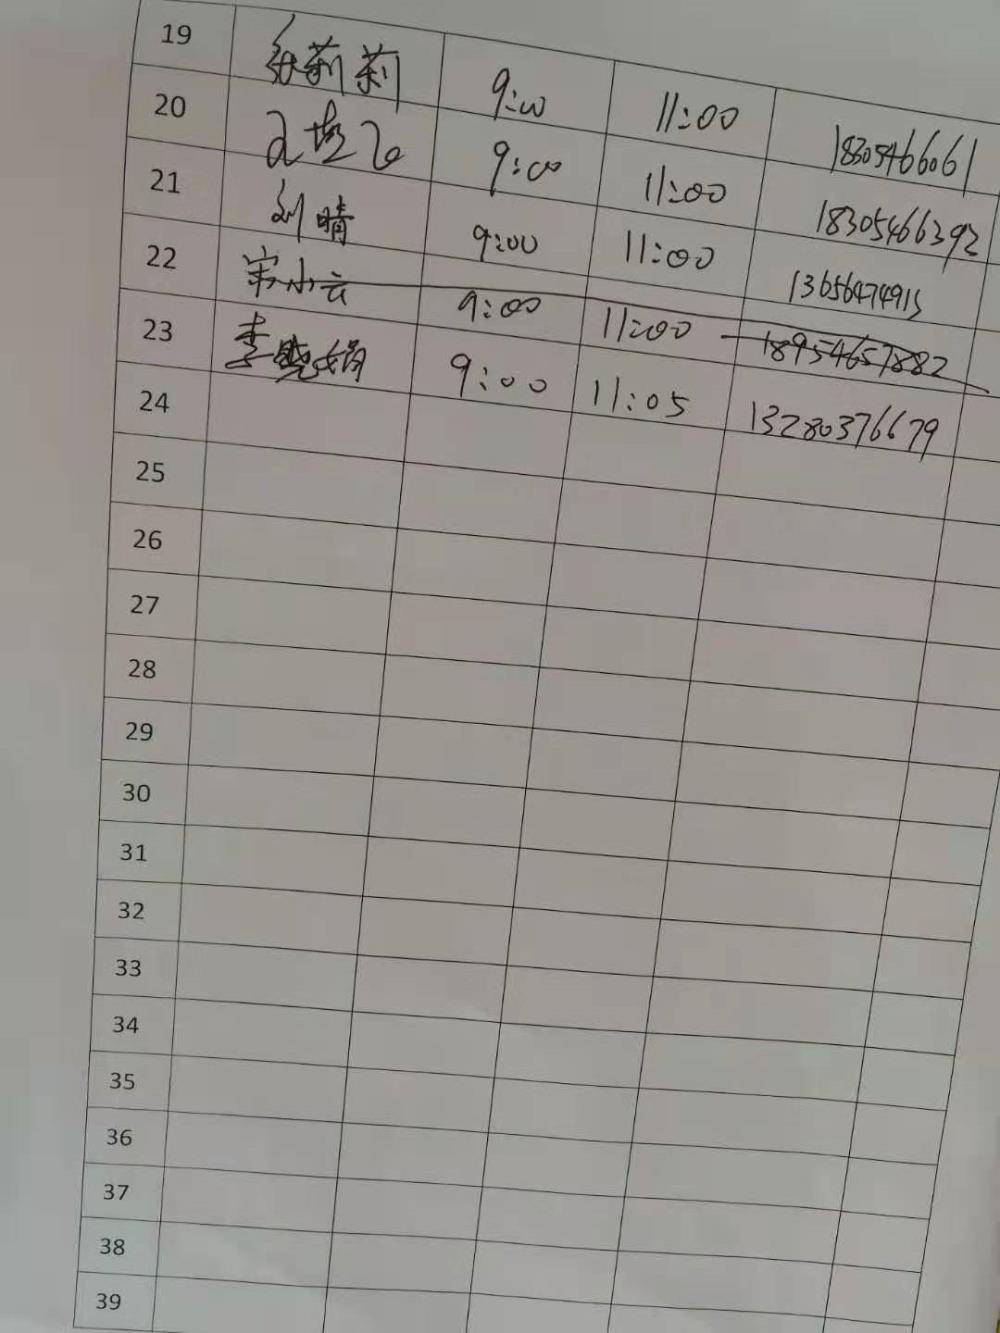 19 张莉莉 9:00 11:00 18305466061
20 9:00 11:00 18305466392
21 刘晴 9:00 11:00 13656474915
22 宋小云 9:00 11:00 18954657882
23 李晓娟 9:00 11:05 13280376679
24
25
26
27
28
29
30
31
32
33
34
35
36
37
38
39